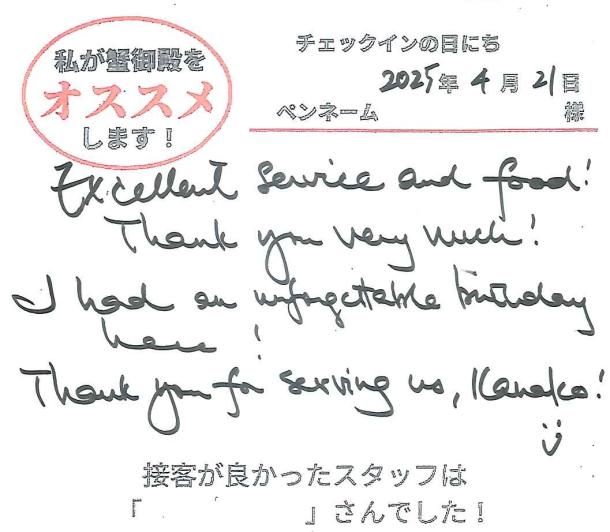 私が蟹御殿を
オススメ
します！
チェックインの日にち
2025年 4月 21日
ペンネーム 様
Excellent service and food!
Thank you very much!
I had an unforgettable birthday
here!
Thank you for serving us, Kanako!
接客が良かったスタッフは
「 」さんでした！